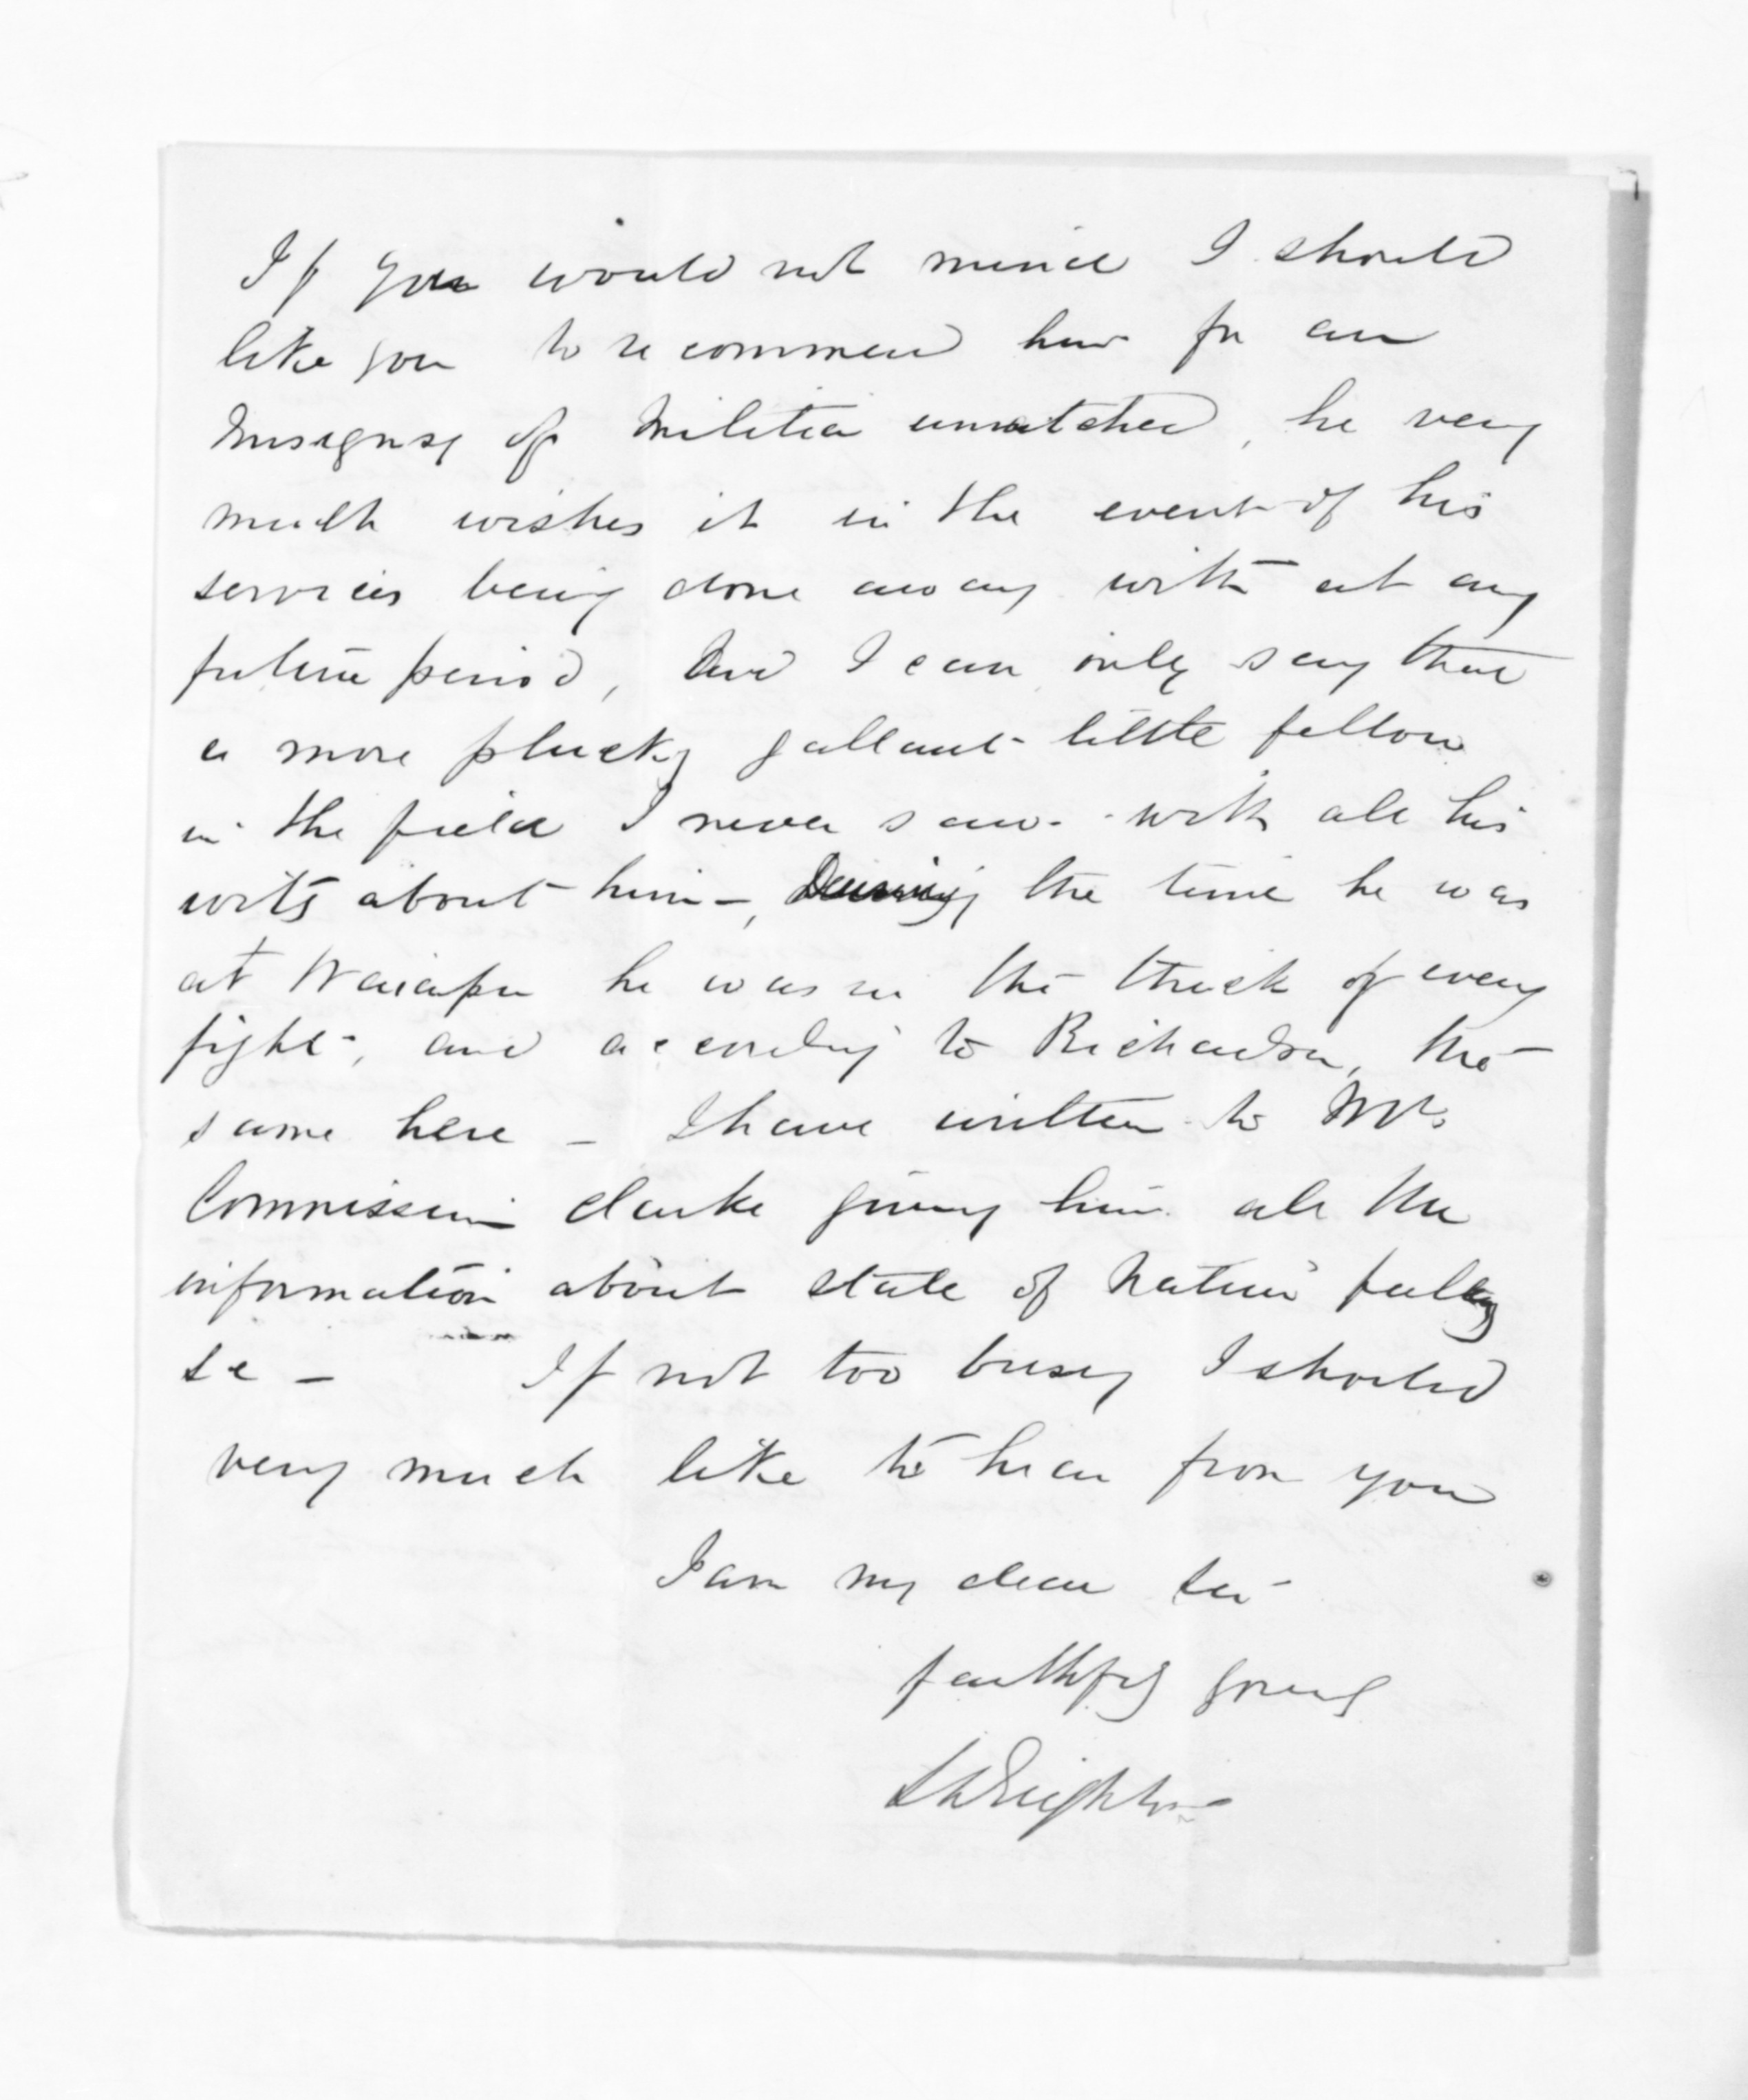 If you would not mind I should
like you to recommend him for an
Ensigncy of Militia unattached, he very
much wishes it in the event of his
services being done away with at any
future period, And I can only say that
a more plucky gallant little fellow
in the field I never saw - with all his
wits about him -, During the time he was
at Waiapu he was in the thick of every
fight, and according to Richardson, the
same here - I have written to Mr
Commissioner Clarke giving him all the
information about state of Native feeling
&c - If not too busy I should
very much like to hear from you
I am my dear Sir
faithfully yours